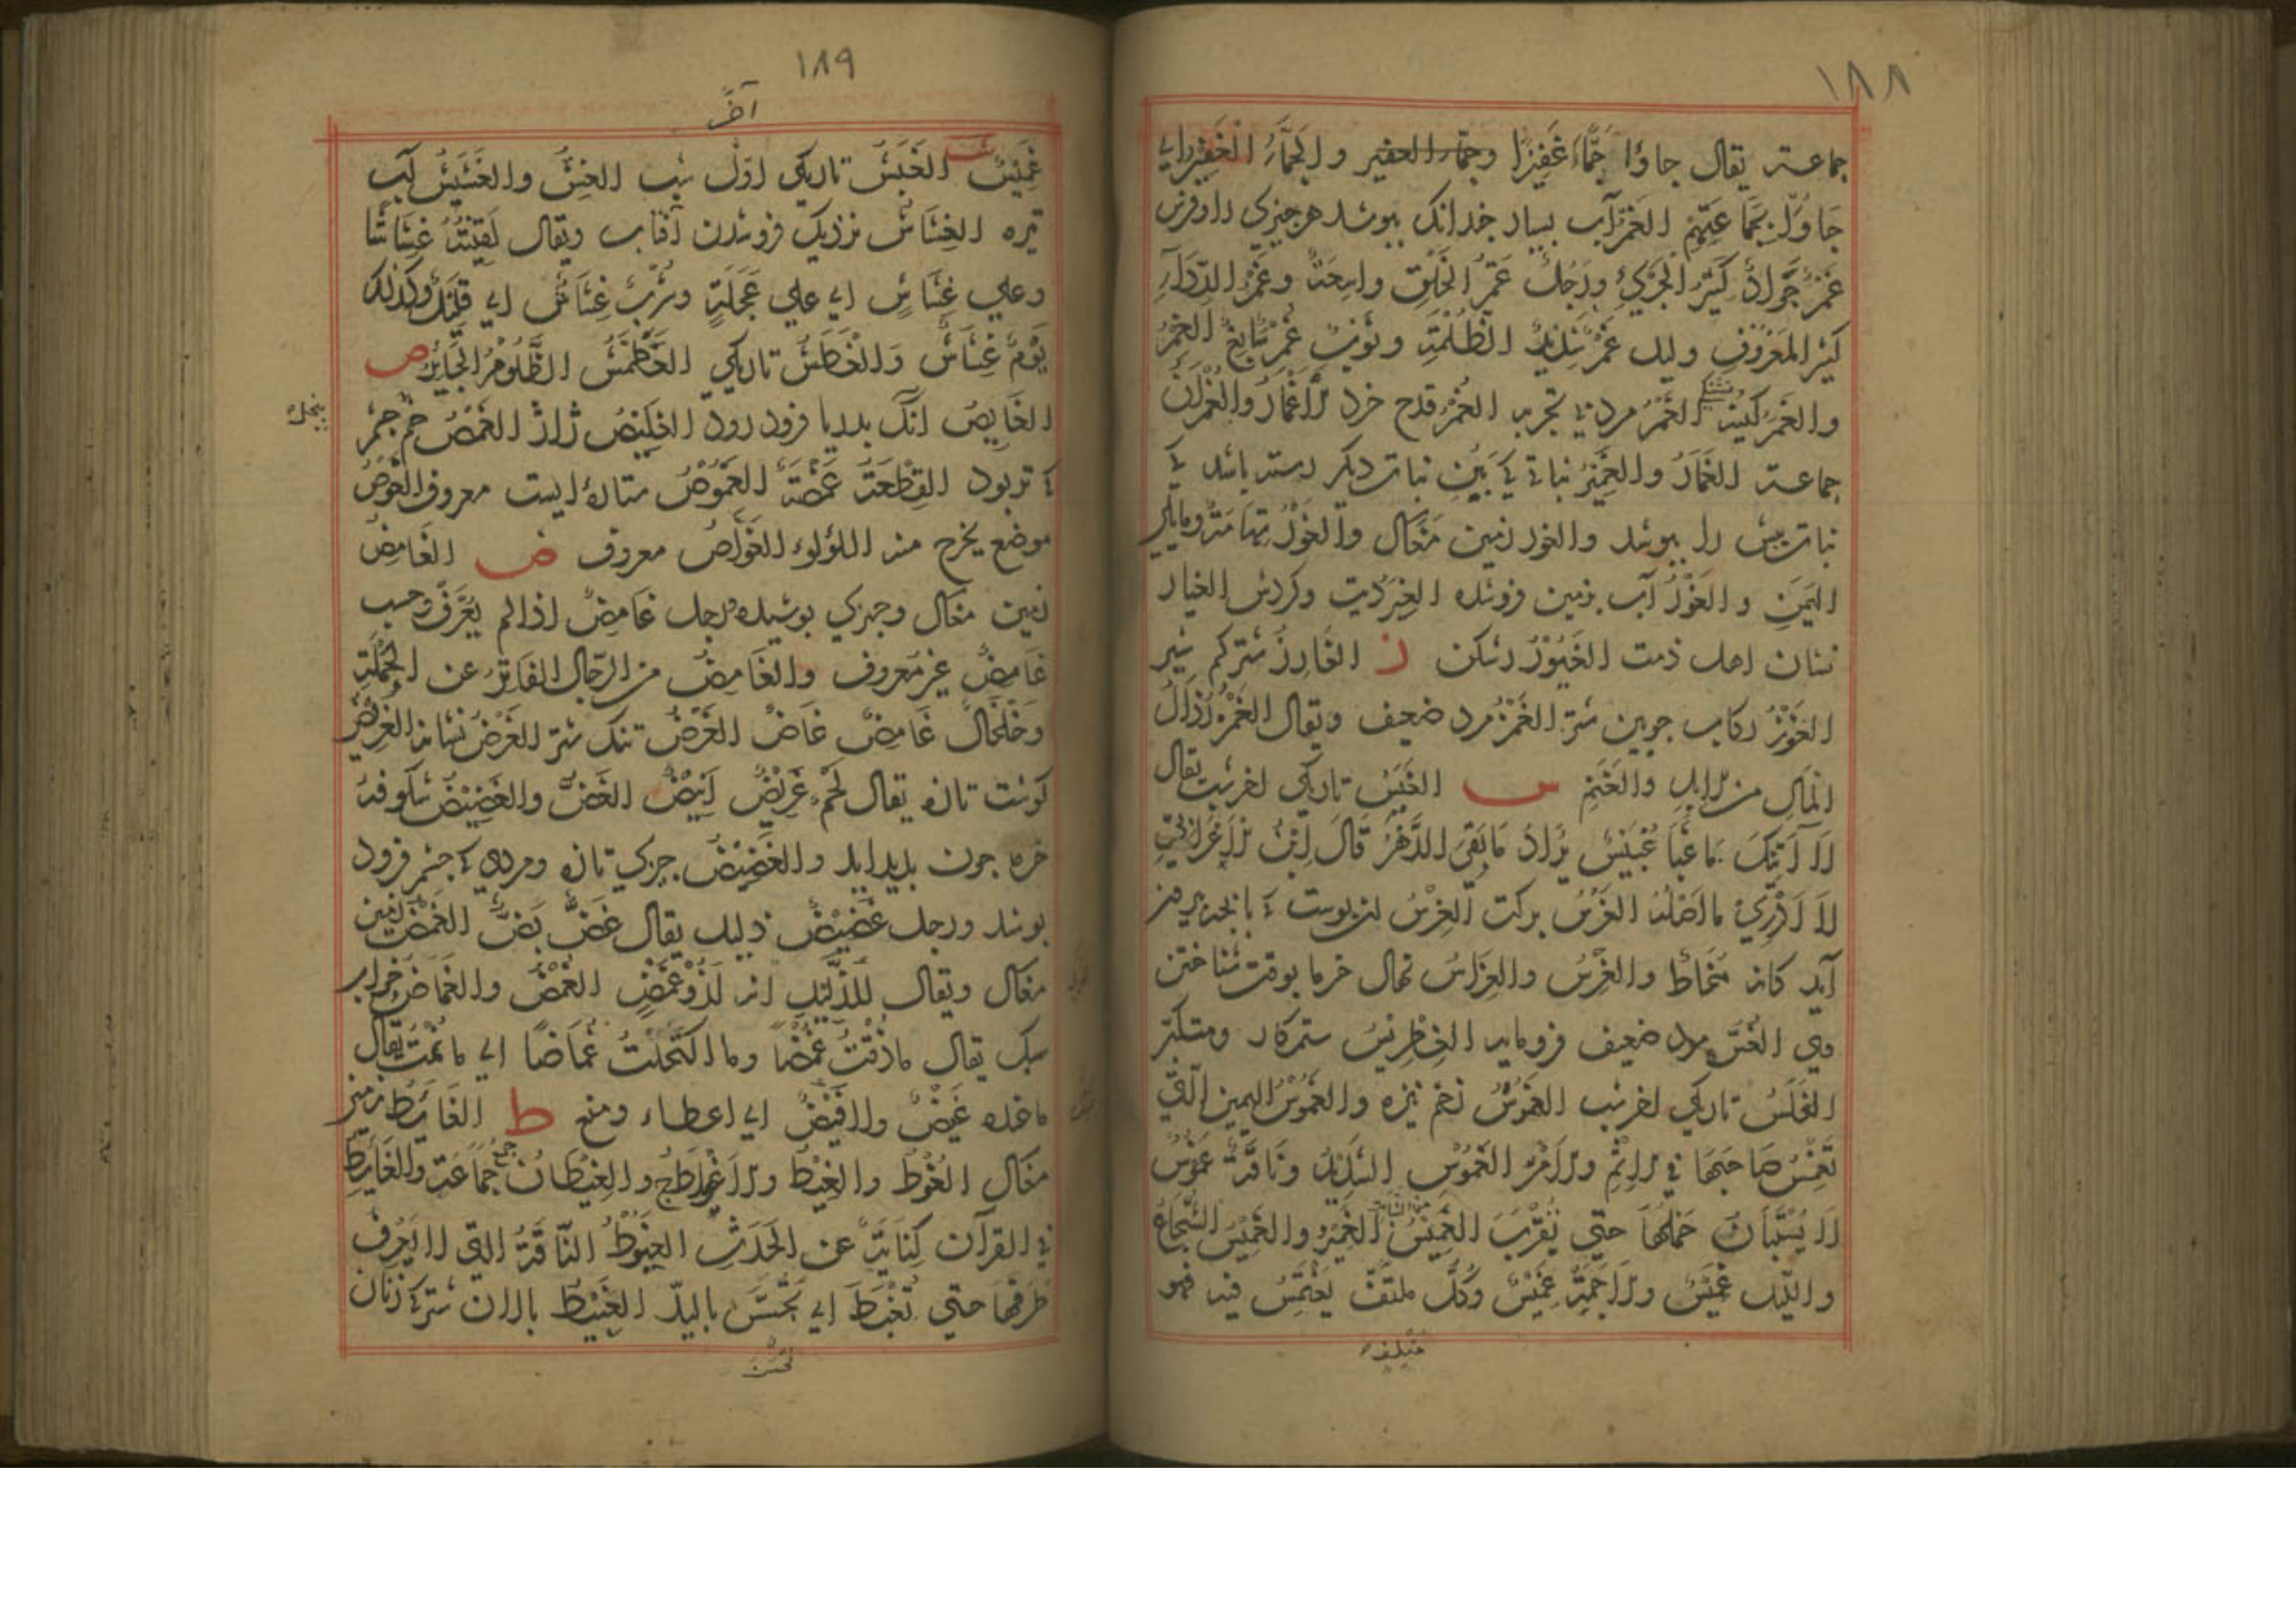 ١٨٨
جماعة يقال جاؤا جَمَّاءَ غَفِيْرًا وجمّاء الغفير والجَمَّاءَ الغَفِيْرَ اي
جَاؤُا بِجَمَاعَتِهِمْ الغَمْرُ آب بسيار چندانک بپوشد هر چیزی را وفرس
غَمْرٌ جَوَادٌ كَثِيْرُ الجَرْيِ ورَجُلٌ غَمْرُ الخُلُقِ واسِعَةٌ وغَمْرُ الرِّدَاءِ
كثير المَعْرُوْفِ وليل غَمْرٌ شَدِيْدُ الظُلْمَةِ وثَوْبٌ غَمْرٌ سَابِغٌ الغِمْرُ
والغَمَرُ كينه تشنكي الغُمْرُ مرد بي تجربه الغُمَرُ قدح خرد الأَغْمَارُ والغُمْرَانُ
جماعة الغَمَارُ والغَمِيْرُ نباتي كه بَيْنِ نبات ديكر رسته باشد كه
نبات پيش را بپوشد والغور زمين مغاك والغَوْرُ تِهَامَةُ وما يلي
اليَمَنَ والغَوْرُ آب بزمين فروشده الغِيَرُ ديت وكردش الغيار
نشان اهل ذمت الغَيُوْرُ رشكن ز الغَارِزُ شتر كم شير
الغَرْزُ ركاب چوبين شتر الغَمَزُ مرد ضعيف ويقال الغَمَزُ رُذَالُ
المَالِ من الإبِلِ والغَنَمِ س الغَبَسُ تاريكي اخر شب يقال
لاَ آتِيْكَ مَا غَبَا غُبَيْسٌ يُرَادُ مَا بَقِيَ الدَّهْرُ قَالَ اِبْنُ الأَعْرَابِيِّ
لاَ اَدْرِيْ ما اَصْلُهُ الغَرْسُ بركت الغِرْسُ ان پوست كه با بچه بيرون
آيد كانه مُخَاطٌ والغَرْسُ والغِرَاسُ نهال خرما بوقت نشاختن
وي الغُسُّ مرد ضعيف فرومايه الغِطْرِيْسُ ستمكار ومتكبر
الغَلَسُ تاريكي اخر شب الغَمُوْسُ زخم نيزه والغَمُوْسُ اليمين الّتي
تَغْمِسُ صَاحِبَهَا في الإِثْمِ والأَمْرُ الغَمُوْسُ الشَدِيْدُ ونَاقَةٌ غَمُوْسٌ
لا يُسْتَبَانُ حَمْلُهَا حتي تُقْرِبَ الغَمِيْسُ الغَمِيْرُ والغَمِيْسُ الشُّجَاعُ
والليل غَمِيْسٌ والأَجَمَةُ غَمِيْسٌ وَكُلُّ ملتفّ يُغْتَمَسُ فيه فهو
١٨٩
غَمِيْسٌ ش الغَبَشُ تاريكي اوّل شب الغِشُّ والغَشَشُ آب
تيره الغِشَاشُ نزديك فروشدن آفتاب ويقال لَقِيْتُهُ غِشَاشًا
وعلي غِشَاشٍ اي علي عَجَلَةٍ وشُرْبٌ غِشَاشٌ اي قليل وكذلك
يَوْمٌ غِشَاشٌ وَالْغَطَشُ تاريكي الغَطَمَّشُ الظَّلُوْمُ الجَائِرُ ص
الغَايِصُ آنك بدريا فرود رود الغَمَصُ خم چشم
كه تر بود القِطْعَةُ غَمَصَةٌ الغَمُوْصُ ستاره ايست معروف الغَوْصُ
موضع يخرج منه اللؤلؤ الغَوَّاصُ معروف ض الغَامِضُ
زمين مغاك وچيزي پوشيده ورجل غَامِضٌ اذا لم يُعْرَفْ وحسب
غَامِضٌ غير مَعروف والغَامِضُ من الرّجال الفَاتِرُ عن الحَمْلَةِ
وخَلْخَالٌ غَامِضٌ غَاصٌّ الغَرْضُ تنك شتر الغَرَضُ نشانه الغَرِيْضُ
كوشت تازه يقال لَحْمٌ غَرِيْضٌ اَبْيَضُ الغَضُّ والغَضِيْضُ شكوفهٔ
خرما چون پديد ايد والغَضِيْضُ چيزي تازه ومردي كه چشم فرود
پوشد ورجل غَضِيْضٌ ذليل يقال غَضٌّ بَضٌّ الغَمْضُ زمين
مغاك ويقال لِلذَّلِيْلِ انه لَذُوْ غَمْضٍ الغُمْضُ والغَمَاضُ خواب
سبك يقال ما ذُقْتُ غُمْضًا وما اكْتَحَلْتُ غَمَاضًا اي ما نُمْتُ يقال
ما عنده غَيْضٌ ولا فَيْضٌ اي اعطاء ومنع ط الغَايِطُ زمين
مغاك الغُوْطُ والغِيْطُ والأَغْوَاطُ ج والغِيْطَانُ جَمَاعَةٌ والغَايِطُ
في القرآن كِنَايَةٌ عن الحَدَثِ الغَبُوْطُ النَّاقَةُ التي لا يُعْرَفُ
طِرْقُهَا حتي تُغْبَطَ اي تُجَسَّ باليدّ الغَبِيْطُ پالان شتر كه زنان